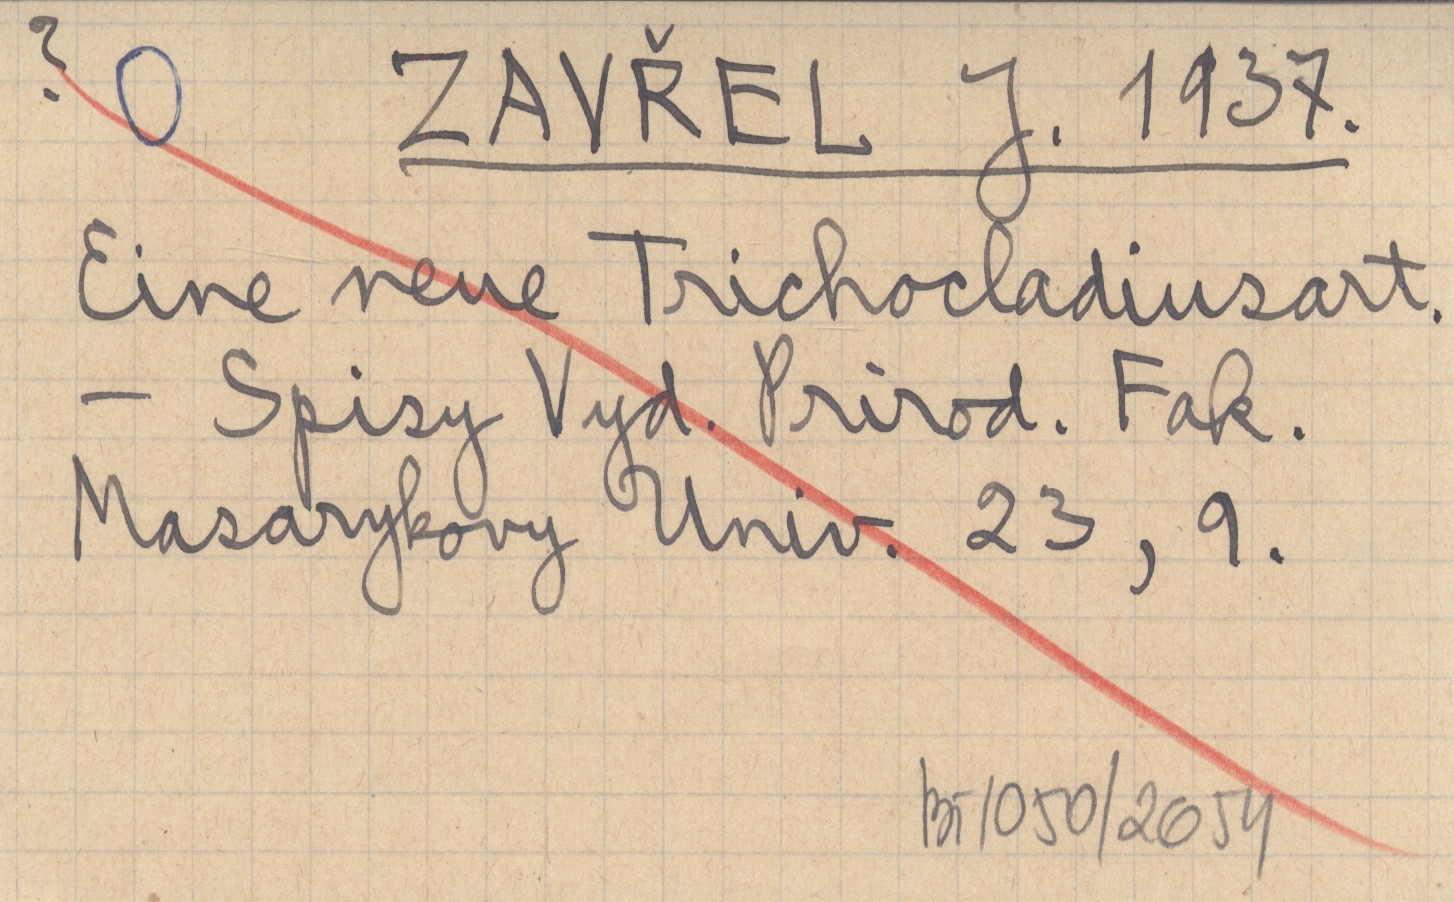 ? O ZAVŘEL J. 1937.
Eine neue Trichocladiusart.
— Spisy Vyd. Prirod. Fak.
Masarykovy Univ. 23, 9.